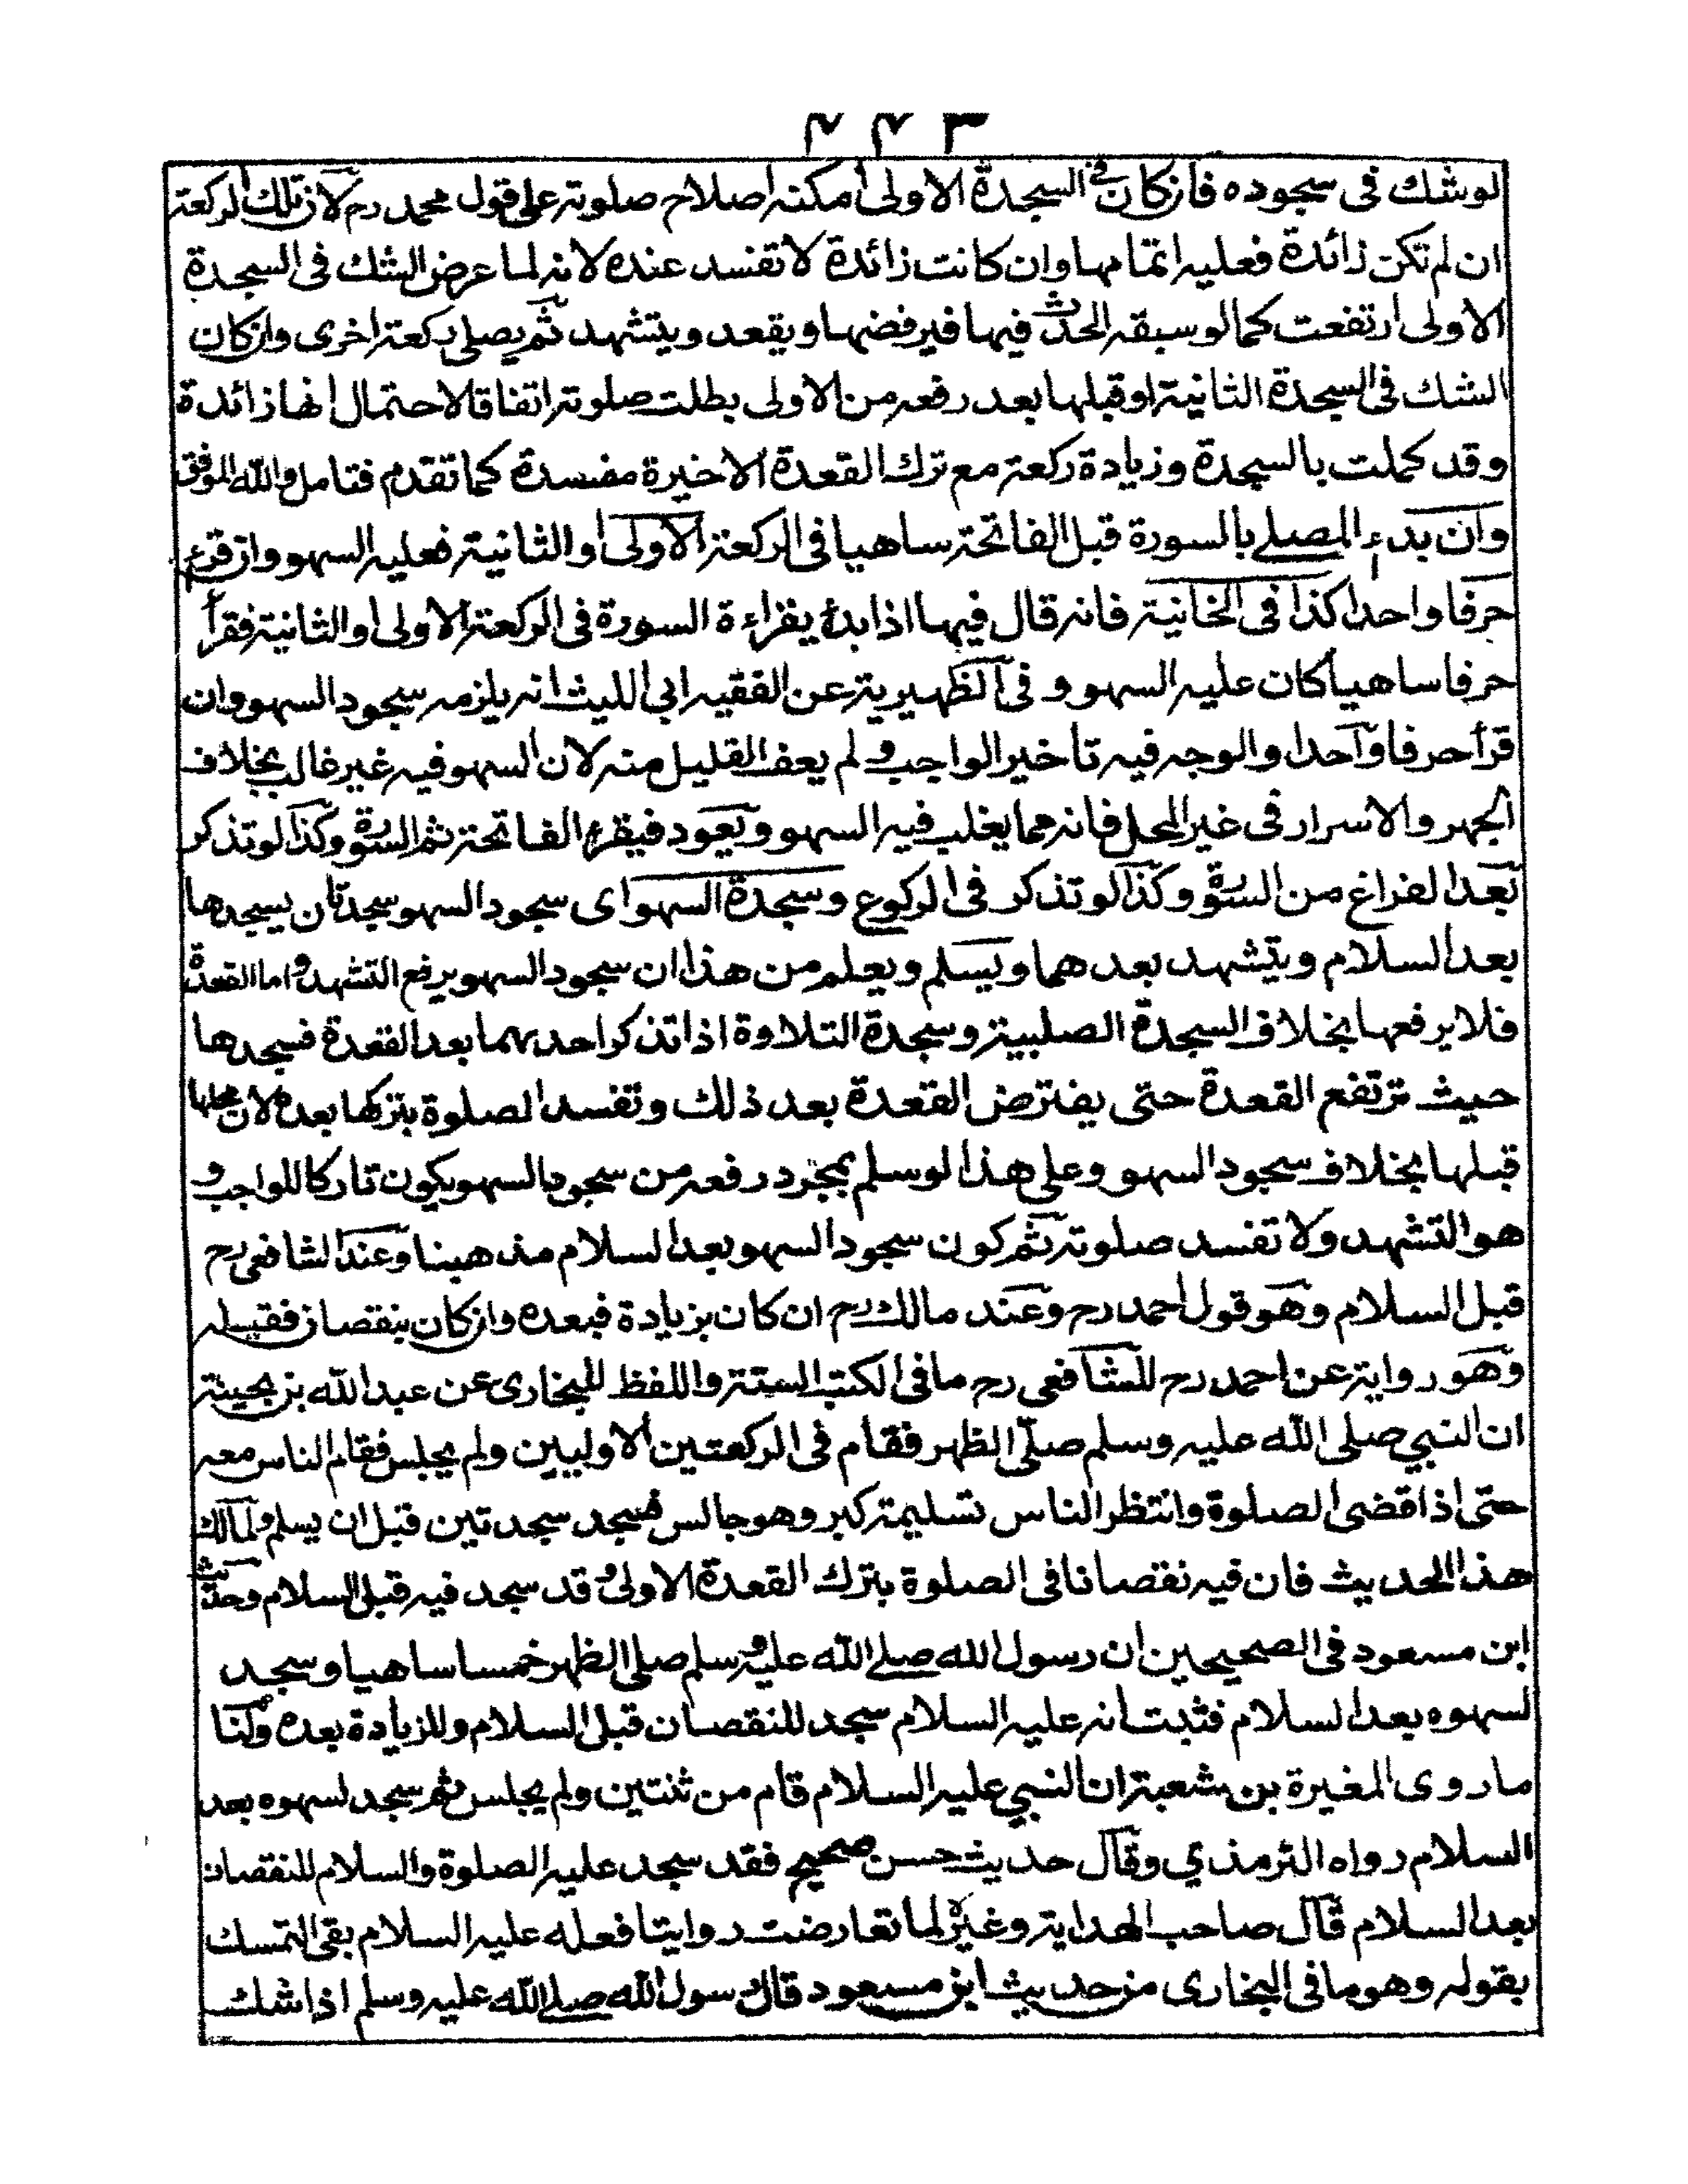 ٣٤٧
لوشك فى سجوده فان كان فى السجدة الاولى امكنه اصلاح صلوته على قول محمد رح لان تلك الركعة
ان لم تكن زائدة فعليه اتمامها وان كانت زائدة لا تفسد عنده لانه لما عرض الشك فى السجدة
الاولى ارتفعت كما لو سبقه الحدث فيها فيرفضها ويقعد ويتشهد ثم يصلى ركعة اخرى وان كان
الشك فى السجدة الثانية او قبلها بعد رفعه من الاولى بطلت صلوته اتفاقا لاحتمال انها زائدة
وقد كملت بالسجدة وزيادة ركعة مع ترك القعدة الاخيرة مفسدة كما تقدم فتامل والله الموفق
وان بدء المصلے بالسورة قبل الفاتحة ساهيا فى الركعة الاولى او الثانية فعليه السهو وان قرء
حرفا واحدا كذا فى الخانية فانه قال فيها اذا بدئ بقراءة السورة فى الركعة الاولى او الثانية فقرأ
حرفا ساهيا كان عليه السهو و فى الظهيرية عن الفقيه ابى الليث انه يلزمه سجود السهو وان
قرأ حرفا واحدا والوجه فيه تاخير الواجب و لم يعف القليل منه لان السهو فيه غير غالب بخلاف
الجهر والاسرار فى غير المحل فانه مما يغلب فيه السهو ويعود فيقرء الفاتحة ثم السورة وكذا لو تذكر
بعد الفراغ من السورة وكذا لو تذكر فى الركوع وسجدة السهو اى سجود السهو سجدتان يسجدها
بعد السلام ويتشهد بعدهما ويسلم ويعلم من هذا ان سجود السهو يرفع التشهد واما القعدة
فلا يرفعها بخلاف السجدة الصلبية وسجدة التلاوة اذا تذكر احدهما بعد القعدة فسجدها
حيث ترتفع القعدة حتى يفترض القعدة بعد ذلك وتفسد الصلوة بتركها بعده لان محلها
قبلها بخلاف سجود السهو وعلى هذا لو سلم بمجرد رفعه من سجود السهو يكون تاركا للواجب و
هو التشهد ولا تفسد صلوته ثم كون سجود السهو بعد السلام مذهبنا وعند الشافعى رح
قبل السلام وهو قول احمد رح وعند مالك رح ان كان بزيادة فبعده وان كان بنقصان فقبله
وهو رواية عن احمد رح للشافعى رح ما فى الكتب الستة واللفظ للبخارى عن عبد الله بن بحينة
ان النبي صلى الله عليه وسلم صلّى الظهر فقام فى الركعتين الاوليين ولم يجلس فقام الناس معه
حتى اذا قضى الصلوة وانتظر الناس تسليمة كبر وهو جالس فسجد سجدتين قبل ان يسلم ولمالك
هذا الحديث فان فيه نقصانا فى الصلوة بترك القعدة الاولى و قد سجد فيه قبل السلام وحديث
ابن مسعود فى الصحيحين ان رسول الله صلے الله عليه وسلم صلى الظهر خمسا ساهيا وسجد
لسهوه بعد السلام فثبت انه عليه السلام سجد للنقصان قبل السلام وللزيادة بعده ولنا
ما روى المغيرة بن شعبة ان النبي عليه السلام قام من ثنتين ولم يجلس ثم سجد لسهوه بعد
السلام رواه الترمذي وقال حديث حسن صحيح فقد سجد عليه الصلوة والسلام للنقصان
بعد السلام قال صاحب الهداية وغيره لما تعارضت روايتا فعله عليه السلام بقى التمسك
بقوله وهو ما فى البخارى من حديث ابن مسعود قال رسول الله صلے الله عليه وسلم اذا شك